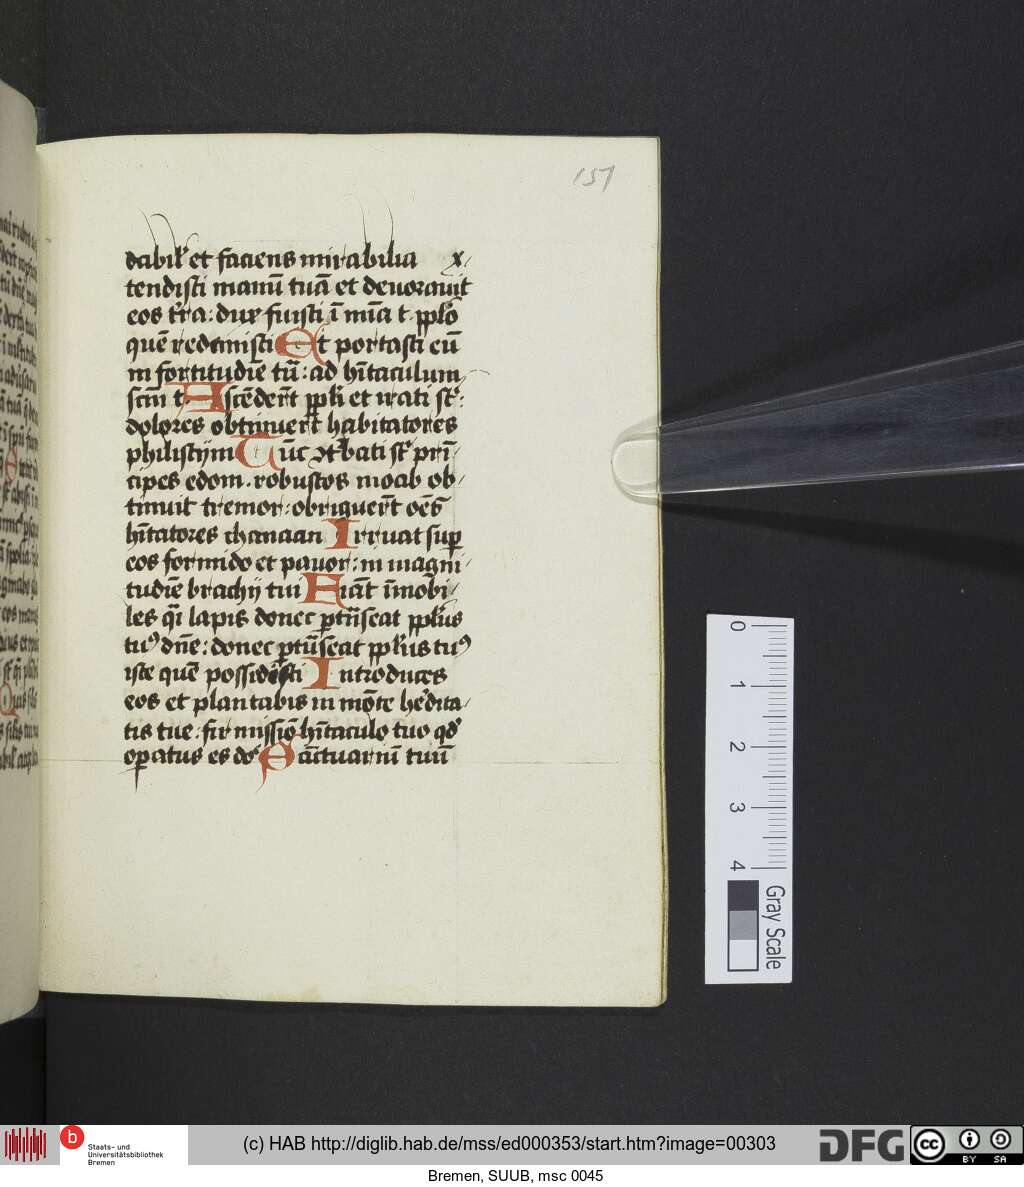 151
dabil' et faciens mirabilia x
tendisti manū tuā et deuorauit
eos t'ra : dux fuisti ī mīa t. pplo
quē redemisti Et portasti eū
in fortitudīe tua : ad hītaculum
scm t. Ascēdert ppli et irati st :
dolores obtinuert habitatores
philistijm Tūc 9t'bati st prī
cipes edom . robustos moab ob
tinuit tremor : obriguert oēs
hītatores chanaan Irruat sup
eos formido et pauor : in magni
tudīe brachij tui Fiāt īmobi
les qi lapis donec ptūseat pplus
tu9 dne : donec ptūseat pplus tu9
iste quē possedisti Introduces
eos et plantabis in mōte he'dita
tis tue : fir missio hītaculo tuo qd'
opatus es do' Sāctuariū tuū
0
1
2
3
4
Gray Scale
b Staats- und
Universitätsbibliothek
Bremen
(c) HAB http://diglib.hab.de/mss/ed000353/start.htm?image=00303
DFG
cc BY SA
Bremen, SUUB, msc 0045